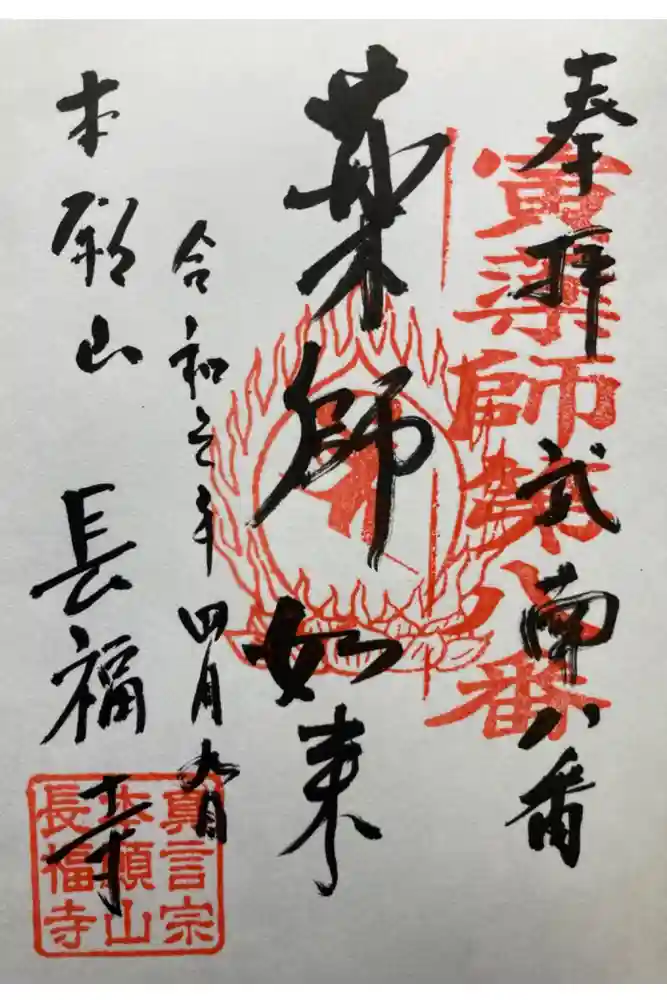 奉拝 武南八番
寅薬師第八番
薬師如来
令和元年四月九日
本願山 長福寺
真言宗
本願山
長福寺